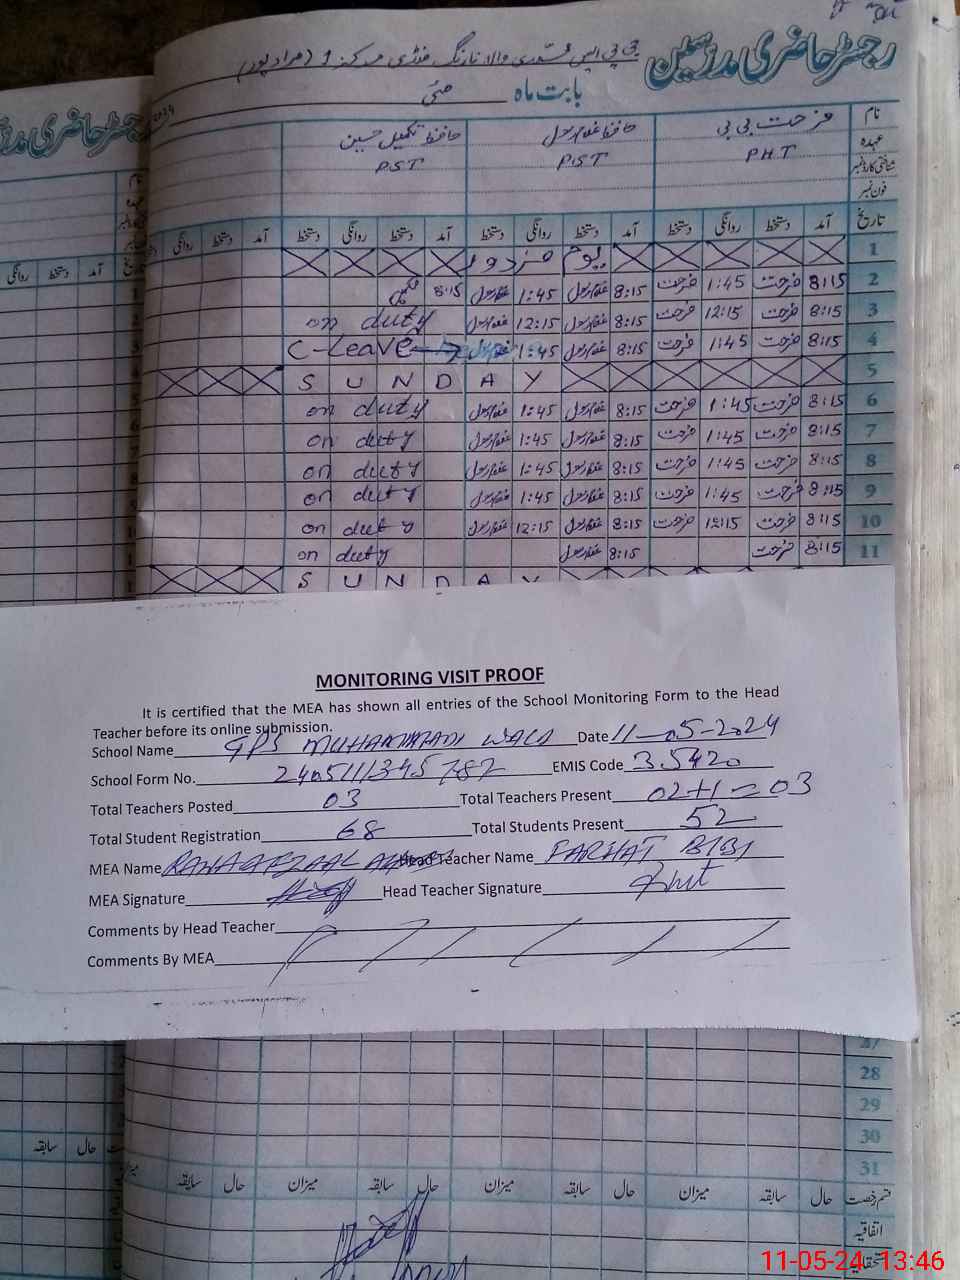 رجسٹر حاضری مدرسین
بابت ماہ مئی
2024
نام فرحت بی بی حافظ غلام رسول حافظ تکمیل حسین
عہدہ PHT PST PST
شناختی کارڈ نمبر
فون نمبر
تاریخ آمد دستخط روانگی دستخط آمد دستخط روانگی دستخط آمد دستخط روانگی دستخط آمد دستخط روانگی
1 یوم مزدور
2 8:15 فرحت 1:45 فرحت 8:15 غلام رسول 1:45 غلام رسول 8:15
3 8:15 فرحت 12:15 فرحت 8:15 غلام رسول 12:15 غلام رسول on duty
4 8:15 فرحت 1:45 فرحت 8:15 غلام رسول 1:45 غلام رسول C-Leave
5 SUNDAY
6 8:15 فرحت 1:45 فرحت 8:15 غلام رسول 1:45 غلام رسول on duty
7 8:15 فرحت 1:45 فرحت 8:15 غلام رسول 1:45 غلام رسول on duty
8 8:15 فرحت 1:45 فرحت 8:15 غلام رسول 1:45 غلام رسول on duty
9 8:15 فرحت 1:45 فرحت 8:15 غلام رسول 1:45 غلام رسول on duty
10 8:15 فرحت 12:15 فرحت 8:15 غلام رسول 12:15 غلام رسول on duty
11 8:15 فرحت 8:15 غلام رسول on duty
SUNDAY
MONITORING VISIT PROOF
It is certified that the MEA has shown all entries of the School Monitoring Form to the Head
Teacher before its online submission.
School Name GPS MUHAMMADI WALA Date 11-05-2024
School Form No. EMIS Code 35420
Total Teachers Posted 03 Total Teachers Present 02+1=03
Total Student Registration 68 Total Students Present 52
MEA Name Head Teacher Name FARHAT BIBI
MEA Signature Head Teacher Signature
Comments by Head Teacher
Comments By MEA
27
28
29
30
31
قسم رخصت حال سابقہ میزان حال سابقہ میزان حال سابقہ میزان حال سابقہ
اتفاقیہ
11-05-24 13:46